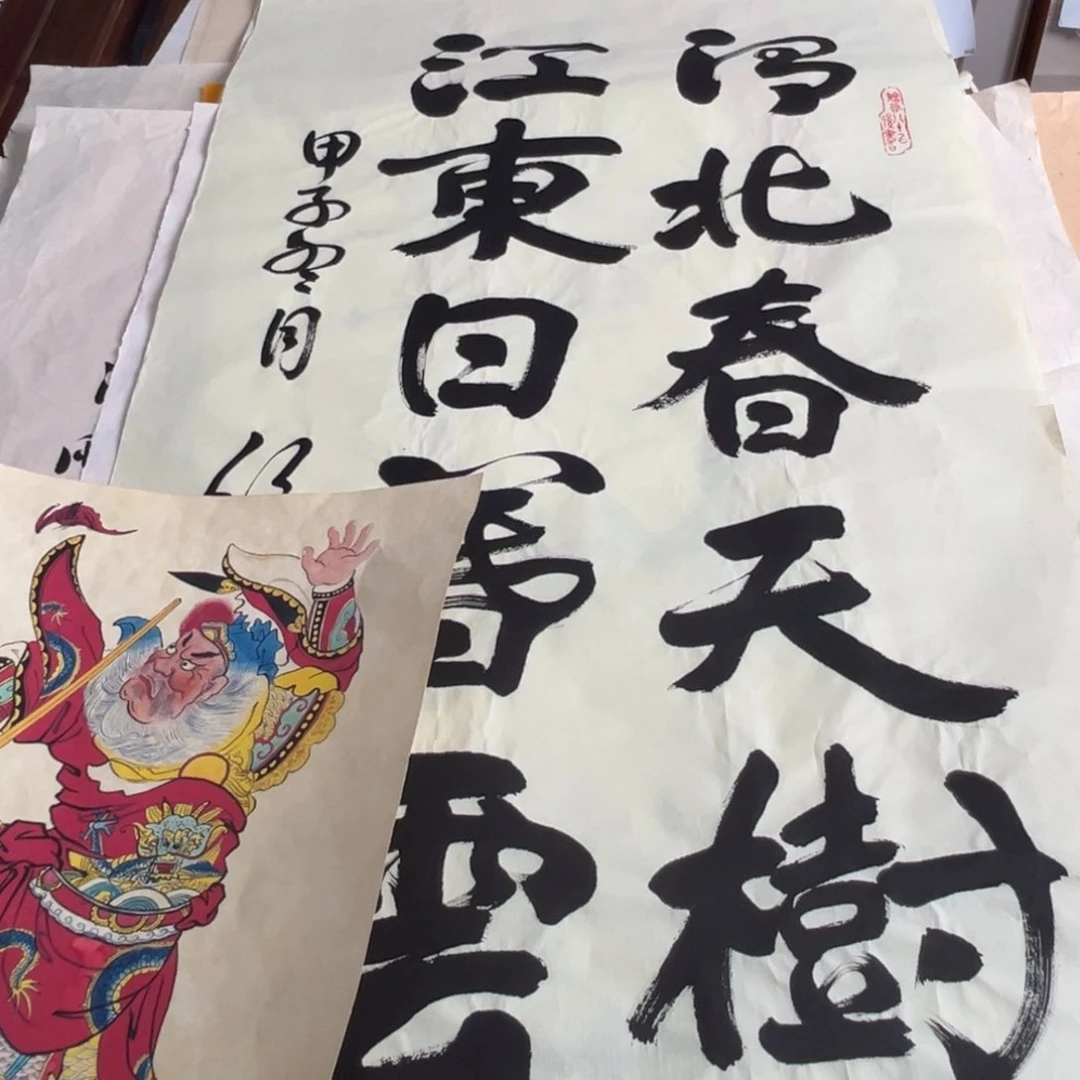 渭北春天樹
江東日暮雲
甲子冬月